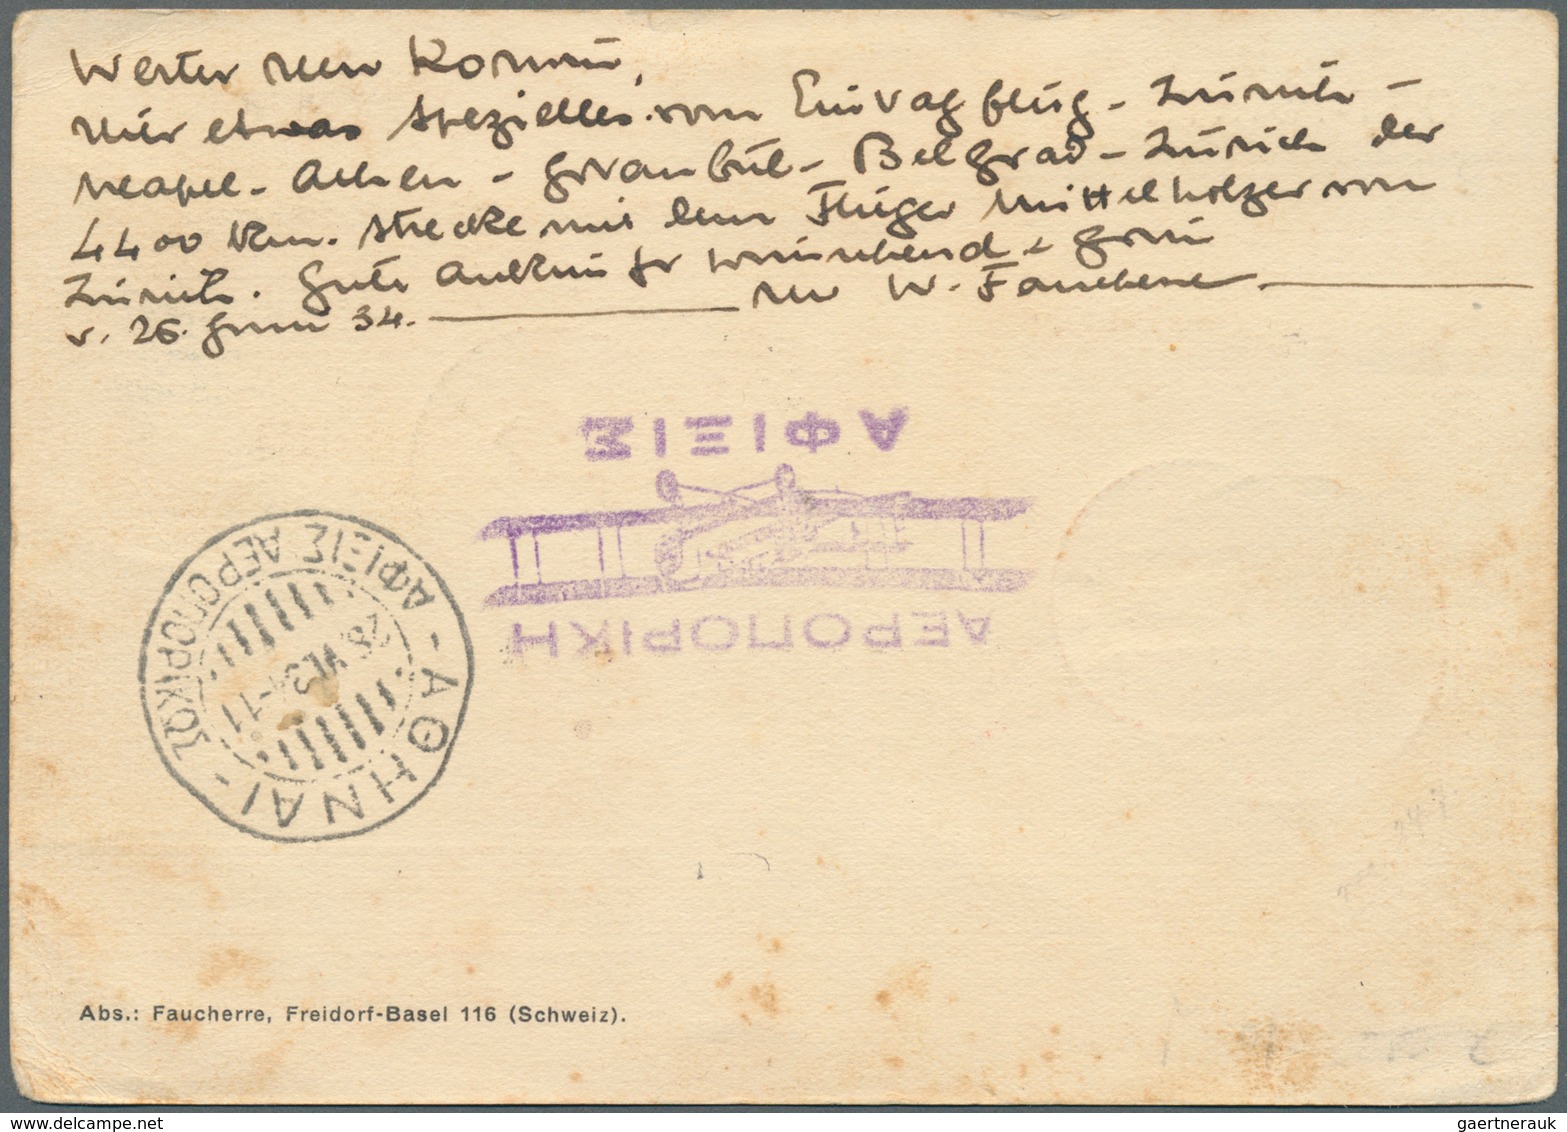 Werter Herr
Hier etwas Spezielles vom Eintagflug - Zürich -
Neapel - Athen - Istanbul - Belgrad - Zürich der
4400 Km. Strecke mit dem Flieger Mittelholzer von
Zürich. Gute Ankunft wünschend &
v. 26. 34. Ihr W. Faucherre
ΑΦΙΞΙΣ
ΑΕΡΟΠΟΡΙΚΗ
ΑΦΙΞΙΣ ΑΕΡΟΠΟΡΙΚΩΣ
- ΑΘΗΝΑΙ -
28 34-11
Abs.: Faucherre, Freidorf-Basel 116 (Schweiz).
gaertnerauk